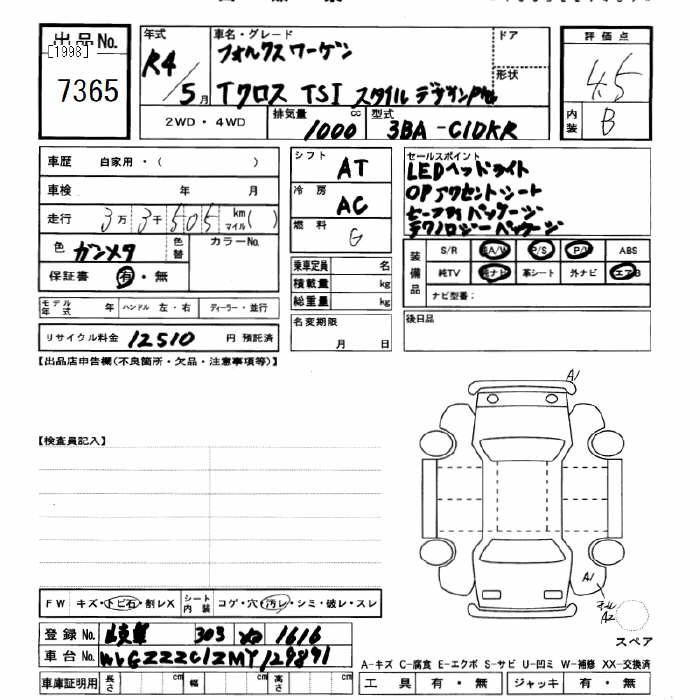 出品No.
[1998]
7365
年式
R4/5月
車名・グレード
フォルクスワーゲン
Tクロス TSI スタイル デザインP
ドア
形状
2WD・4WD
排気量
1000
cc
型式
3BA-C1DKR
評価点
4.5
内装
B
車歴 自家用・( )
車検 年 月
走行 3万3千505 km マイル( )
色 ガンメタ 色替 カラーNo.
保証書 有・無
モデル年式 年 ハンドル 左・右 ディーラー・並行
リサイクル料金 12510 円 預託済
シフト AT
冷房 AC
燃料 G
乗車定員 名
積載量 kg
総重量 kg
名変期限
月 日
セールスポイント
LEDヘッドライト
OPアクセントシート
セーフティパッケージ
テクノロジーパッケージ
装備品
S/R A/W P/S P/W ABS
純TV 純ナビ 革シート 外ナビ エアB
ナビ型番:
後日品
【出品店申告欄(不良箇所・欠品・注意事項等)】
【検査員記入】
A1
A1
A2
スペア
FW キズ・トビ石・割レX シート内装 コゲ・穴・汚レ・シミ・破レ・スレ
登録No. 岐阜 303 1616
車台No. WVGZZZC1ZMY129891
車庫証明用 長さ cm 幅 cm 高さ cm
A-キズ C-腐食 E-エクボ S-サビ U-凹ミ W-補修 XX-交換済
工具 有・無 ジャッキ 有・無